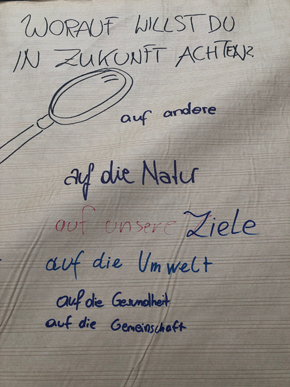 WORAUF WILLST DU
IN ZUKUNFT ACHTEN?
auf andere
auf die Natur
auf unsere Ziele
auf die Umwelt
auf die Gesundheit
auf die Gemeinschaft